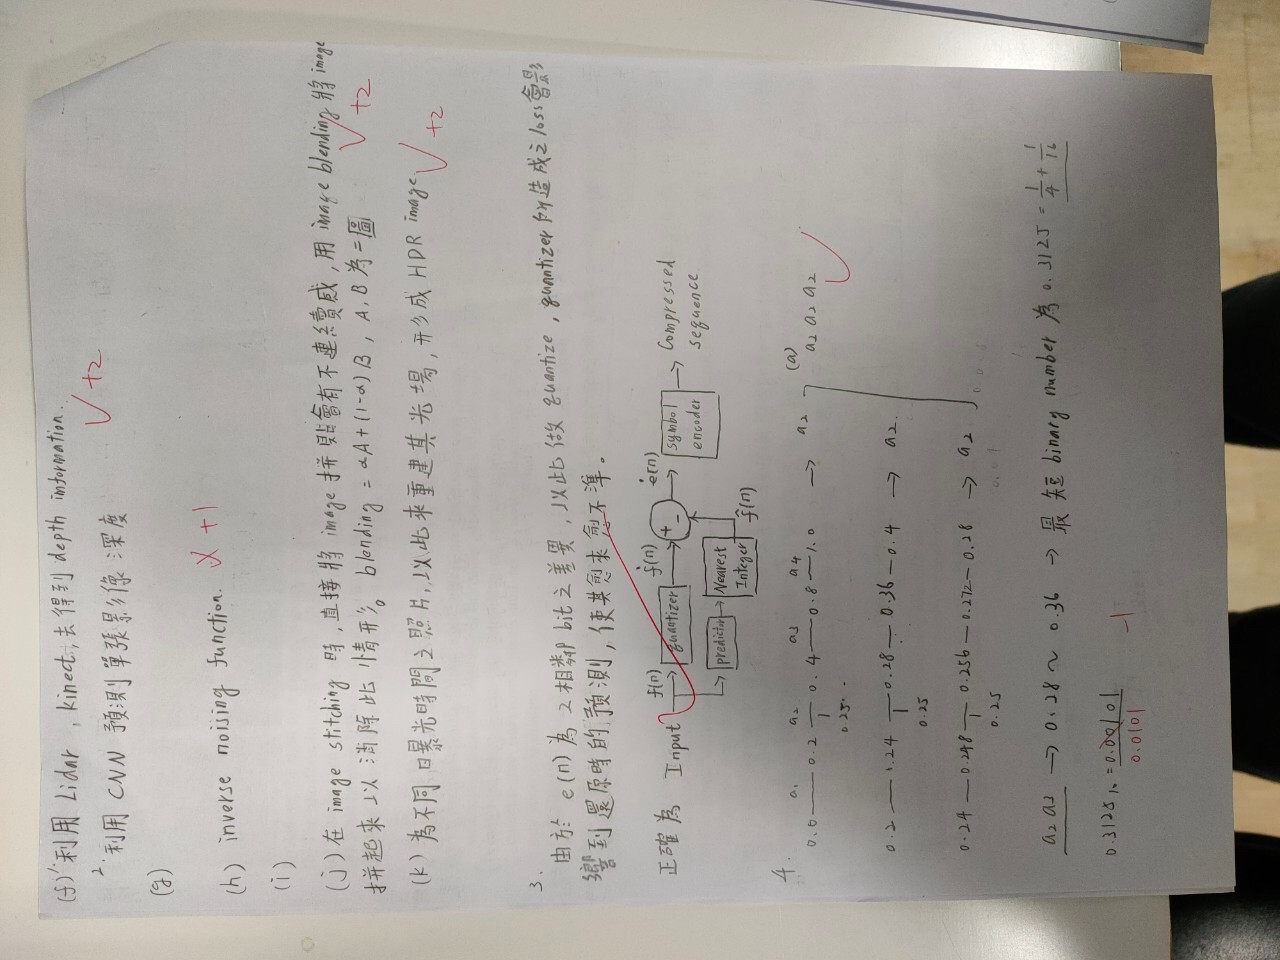 (f) 1. 利用 Lidar , kinect, 去得到 depth imformation.
✓ +2
2. 利用 CNN 預測單張影像深度
(g)
(h) inverse noising function. X +1
(i)
(j) 在 image stitching 時,直接將 image 拼貼會有不連續感,用 image blending 將 image
拼起來以消除此情形。blending = αA+(1-α)B , A,B 為二圖 ✓ +2
(k) 為不同曝光時間之照片,以此來重建其光場,形成 HDR image ✓ +2
3.
由於 e(n) 為 2 相鄰 bit 之差異,以此做 quantize, quantizer 所造成之 loss 會影
響到還原時的預測,使其愈來愈不準。
正確為 Input f(n) quantizer ḟ(n) + - ė(n) symbol encoder → Compressed sequence
predictor → Nearest Integer f̂(n)
4.
a1 a2 a3 a4
0.0 — 0.2 — 0.4 — 0.8 — 1.0 → a2
0.25
(a)
a2 a2 a2 ✓
0.2 — 0.24 — 0.28 — 0.36 — 0.4 → a2
0.25
0.24 — 0.248 — 0.256 — 0.272 — 0.28 → a2
0.25
a2 a3 → 0.28 ~ 0.36 → 最短 binary number 為 0.3125 = 1/4 + 1/16
0.3125₁₀ = 0.00101
0.0101 -1